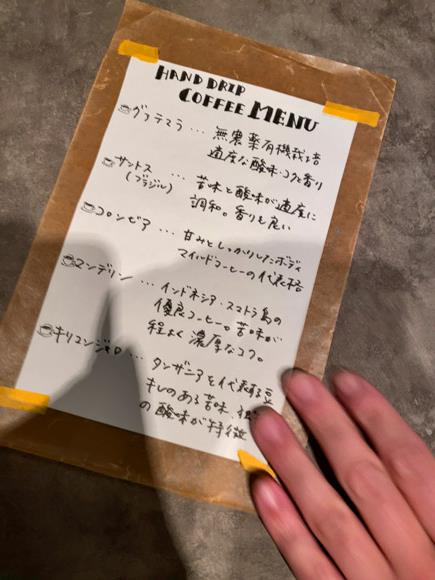 HAND DRIP
COFFEE MENU
グァテマラ … 無農薬有機栽培
適度な酸味・コクと香り
サントス
(ブラジル) … 苦味と酸味が適度に
調和。香りも良い
コロンビア … 甘みとしっかりしたボディ
マイルドコーヒーの代表格
マンデリン … インドネシア・スマトラ島の
優良コーヒー。苦味が
程よく濃厚なコク。
キリマンジャロ … タンザニアを代表する豆
キレのある苦味、
の酸味が特徴